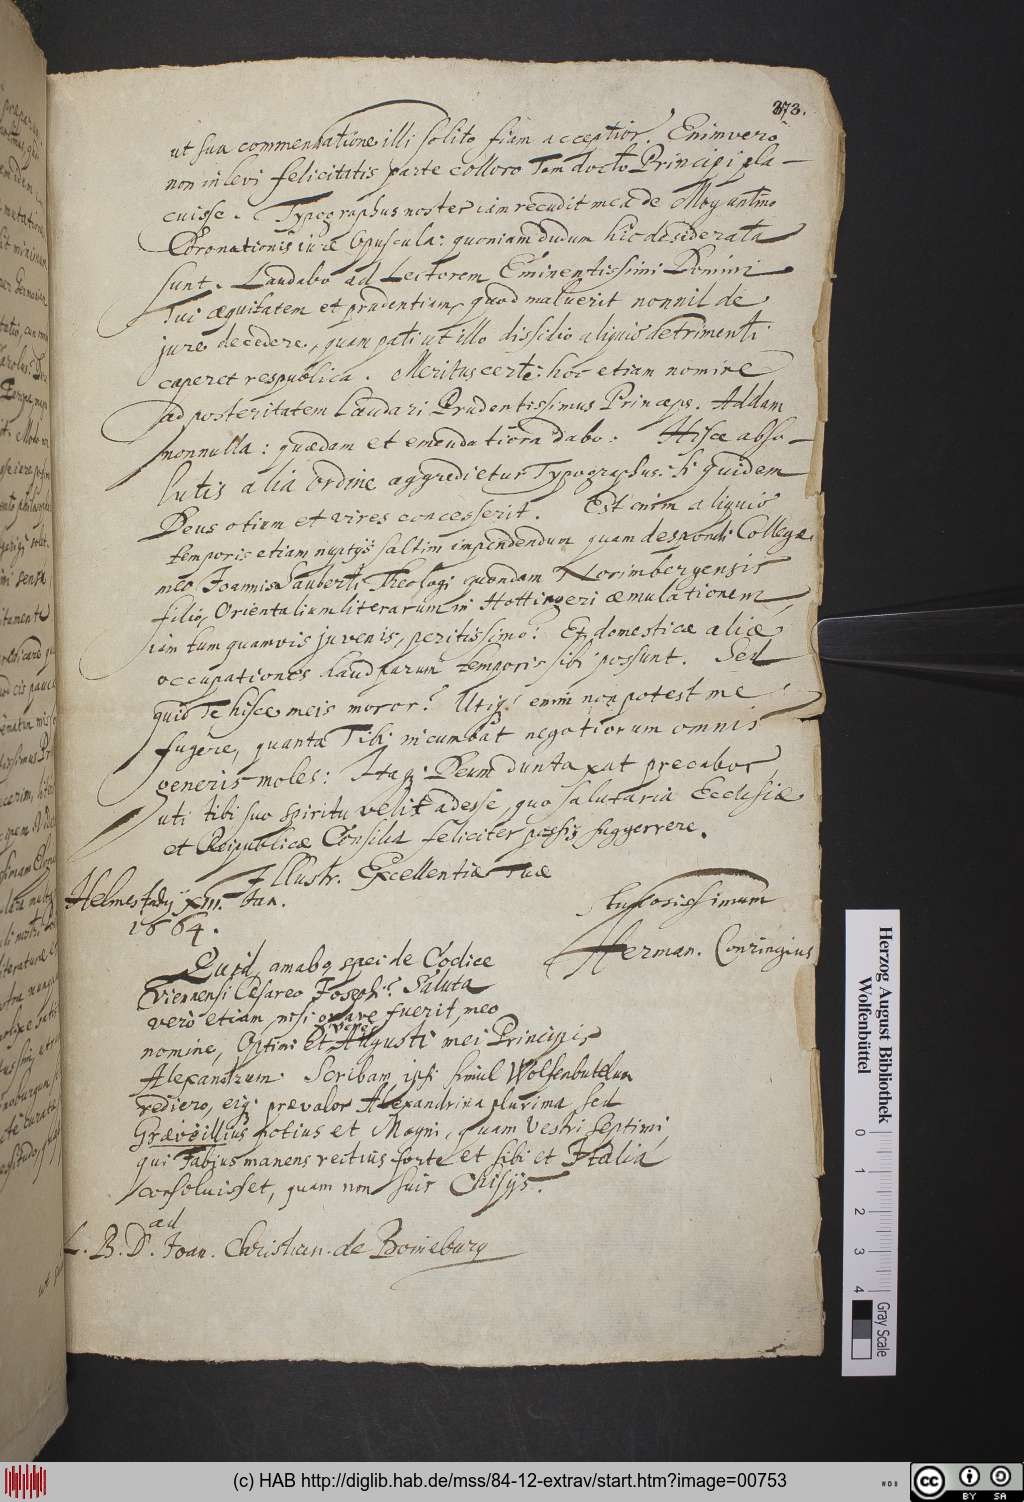 373.
ut sua commendatione illi solito fiam acceptior. Enimvero
non in levi felicitatis parte colloco Tam docto Principi pla-
cuisse. Typographus noster iam recudit mea de Moguntino
Coronationis iure Opuscula: quoniam dudum hic desiderata
sunt. Laudabo ad Lectorem Eminentissimi Domini
Tui æquitatem et prudentiam, quod maluerit nonnil de
jure decedere, quam pati ut illo dissidio aliquid detrimenti
caperet respublica. Meritus certe: hoc etiam nomine
ad posteritatem laudari Prudentissimus Princeps. Addam
nonnulla: quædam et emendatiora dabo: Hisce abso-
lutis alia ordine aggredietur Typographus: si quidem
Deus otium et vires concesserit. Est enim aliquid
temporis etiam nuptijs saltim impendendum quam despondi Collegæ
meo Joannis Sauberti Theologi quondam Norimbergensis
filio, Orientalium literarum in Hottingeri æmulationem,
iam tum quamvis juvenis, peritissimo: Et domesticæ aliæ
occupationes haud parum temporis sibi possunt. Sed
quid Te hisce meis moror? Utiq; enim non potest me
fugere, quanta Tibi incumbat negotiorum omnis
generis moles: Itaq; Deum duntaxat precabor,
uti tibi suo spiritu velit adesse, quo salutaria Ecclesiæ
et Reipublicæ Consilia feliciter possis suggerere.
Illustr. Excellentiæ Tuæ
Helmestadij XIII. Jan.
1664.
studiosissimum
Herman. Conringius
Quid, amabo, spei de Codice
Viennensi Cesareo Joseph. Saluta
vero etiam, nisi grave fuerit, meo
nomine, Optimi Et Augusti mei Principis
Alexandrum. Scribam ipsi simul Wolfenbutelum
rediero, eiq; prævalor Alexandrina plurima, sed
potius et Magni, quam Vestri septimi,
qui Fabius manens rectius forte et sibi et Italiæ
consoluisset, quam non suis Chisijs.
ad
L. B. D. Joan. Christian. de Boineburg
Herzog August Bibliothek
Wolfenbüttel
0 1 2 3 4
Gray Scale
(c) HAB http://diglib.hab.de/mss/84-12-extrav/start.htm?image=00753
cc BY SA